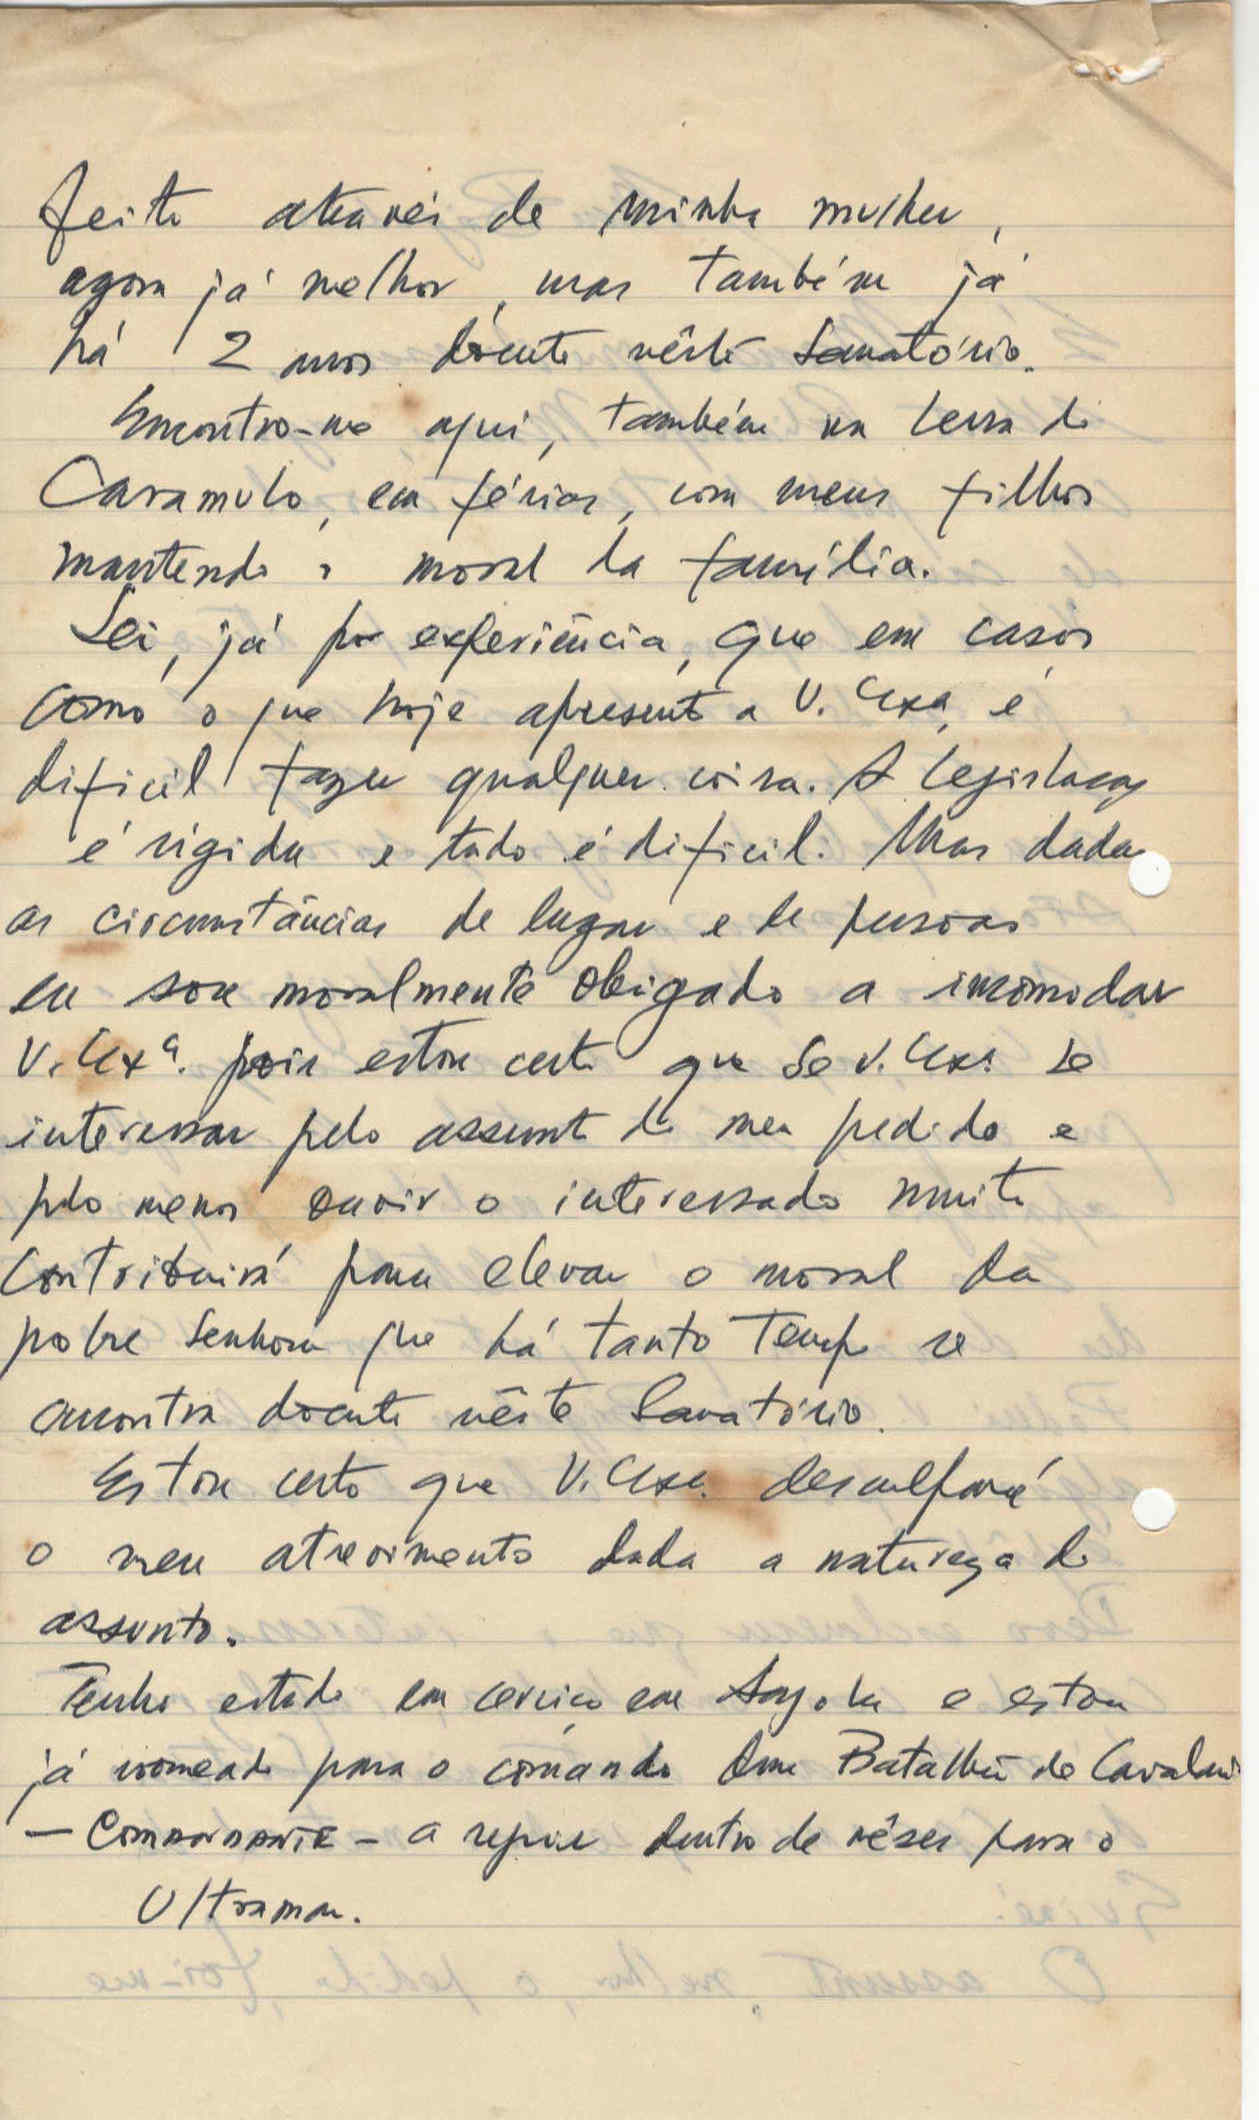 feito através de minha mulher,
agora já melhor, mas também já
há 2 anos doente nêste Sanatório.
Encontro-me aqui, também na terra do
Caramulo, em férias, com meus filhos
mantendo o moral da família.
Sei, já por experiência, que em casos
como o que hoje apresento a V. Exa, é
dificil fazer qualquer coisa. A legislação
é rígida e tudo é dificil. Mas dadas
as circunstâncias de lugar e de pessoas
eu sou moralmente obrigado a incomodar
V. Exª. pois estou certo que se V. Exa. se
interessar pelo assunto do meu pedido e
pelo menos ouvir o interessado muito
contribuirá para elevar o moral da
pobre Senhora que há tanto tempo se
encontra doente nêste Sanatório.
Estou certo que V. Exa. desculpará
o meu atrevimento dada a natureza do
assunto.
Tenho estado em serviço em Angola e estou
já nomeado para o comando dum Batalhão de Cavalaria
— COMANDANTE — a seguir dentro de mêses para o
Ultramar.